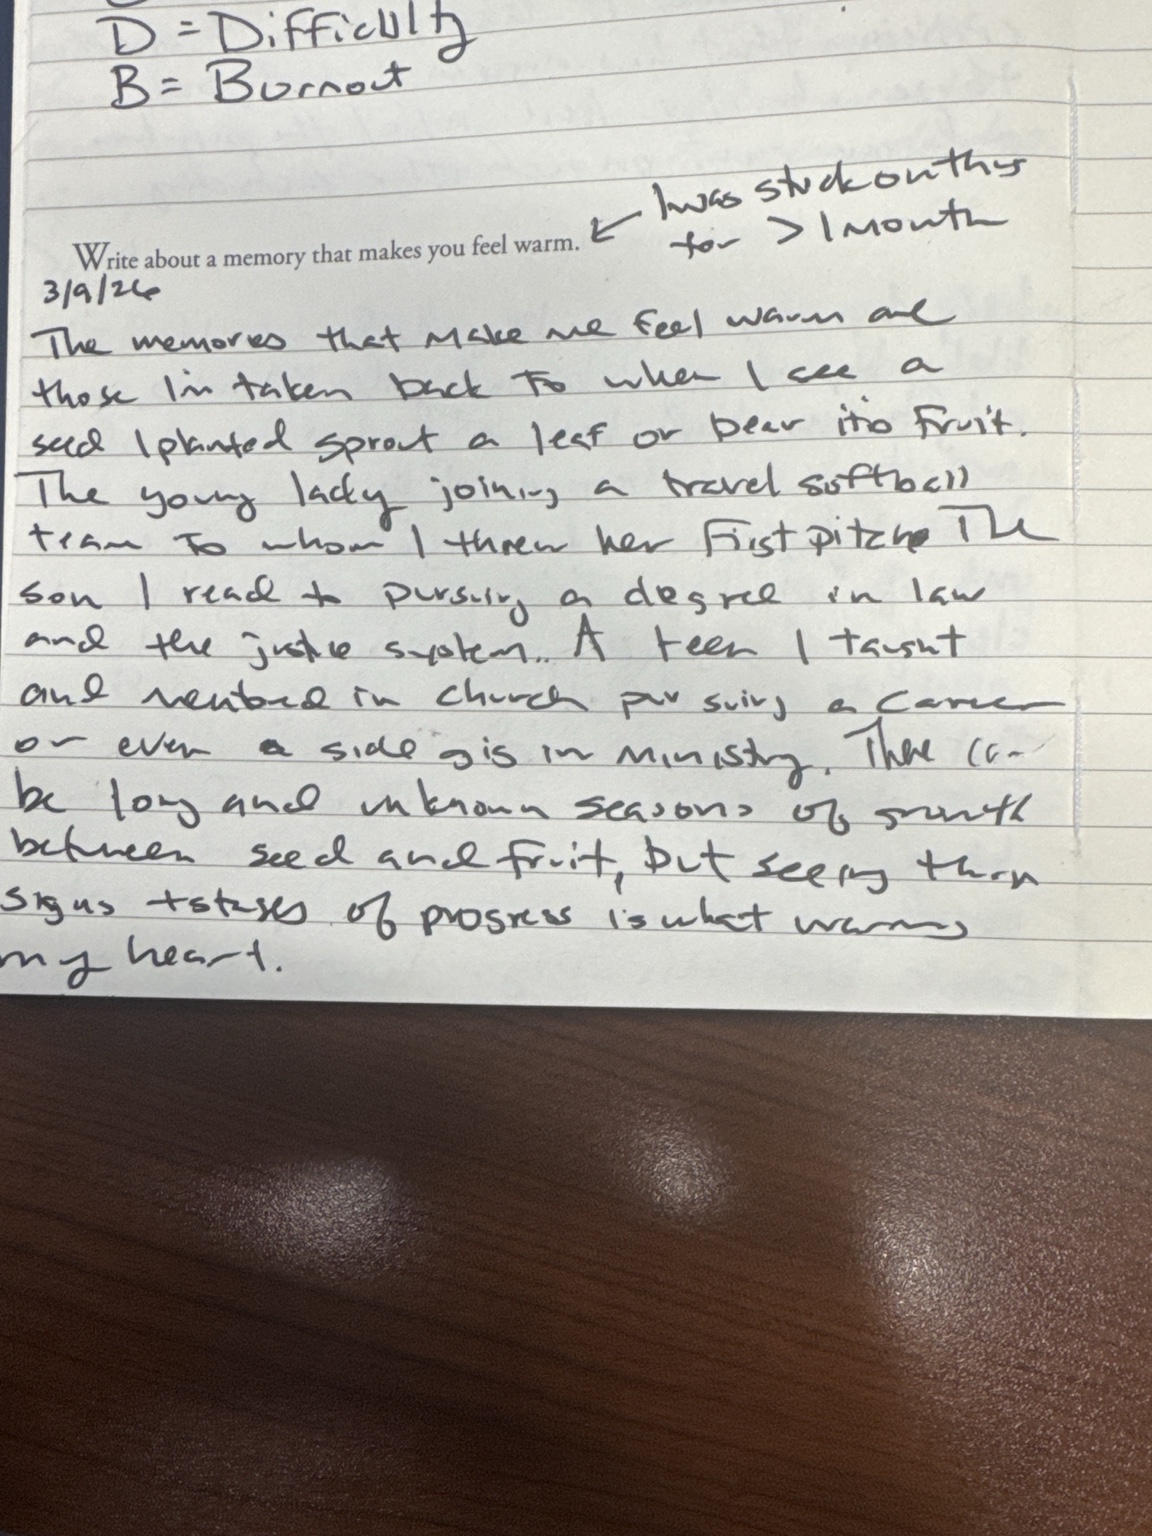 D = Difficulty
B = Burnout
I was stuck on this
for > 1 month
Write about a memory that makes you feel warm.
3/9/26
The memories that make me feel warm are
those I'm taken back to when I see a
seed I planted sprout a leaf or bear it's fruit.
The young lady joining a travel softball
team to whom I threw her first pitch. The
son I read to pursuing a degree in law
and the justice system.. A teen I taught
and mentored in church pursuing a career
or even a side gig in ministry. There can
be long and unknown seasons of growth
between seed and fruit, but seeing them
signs + stages of progress is what warms
my heart.